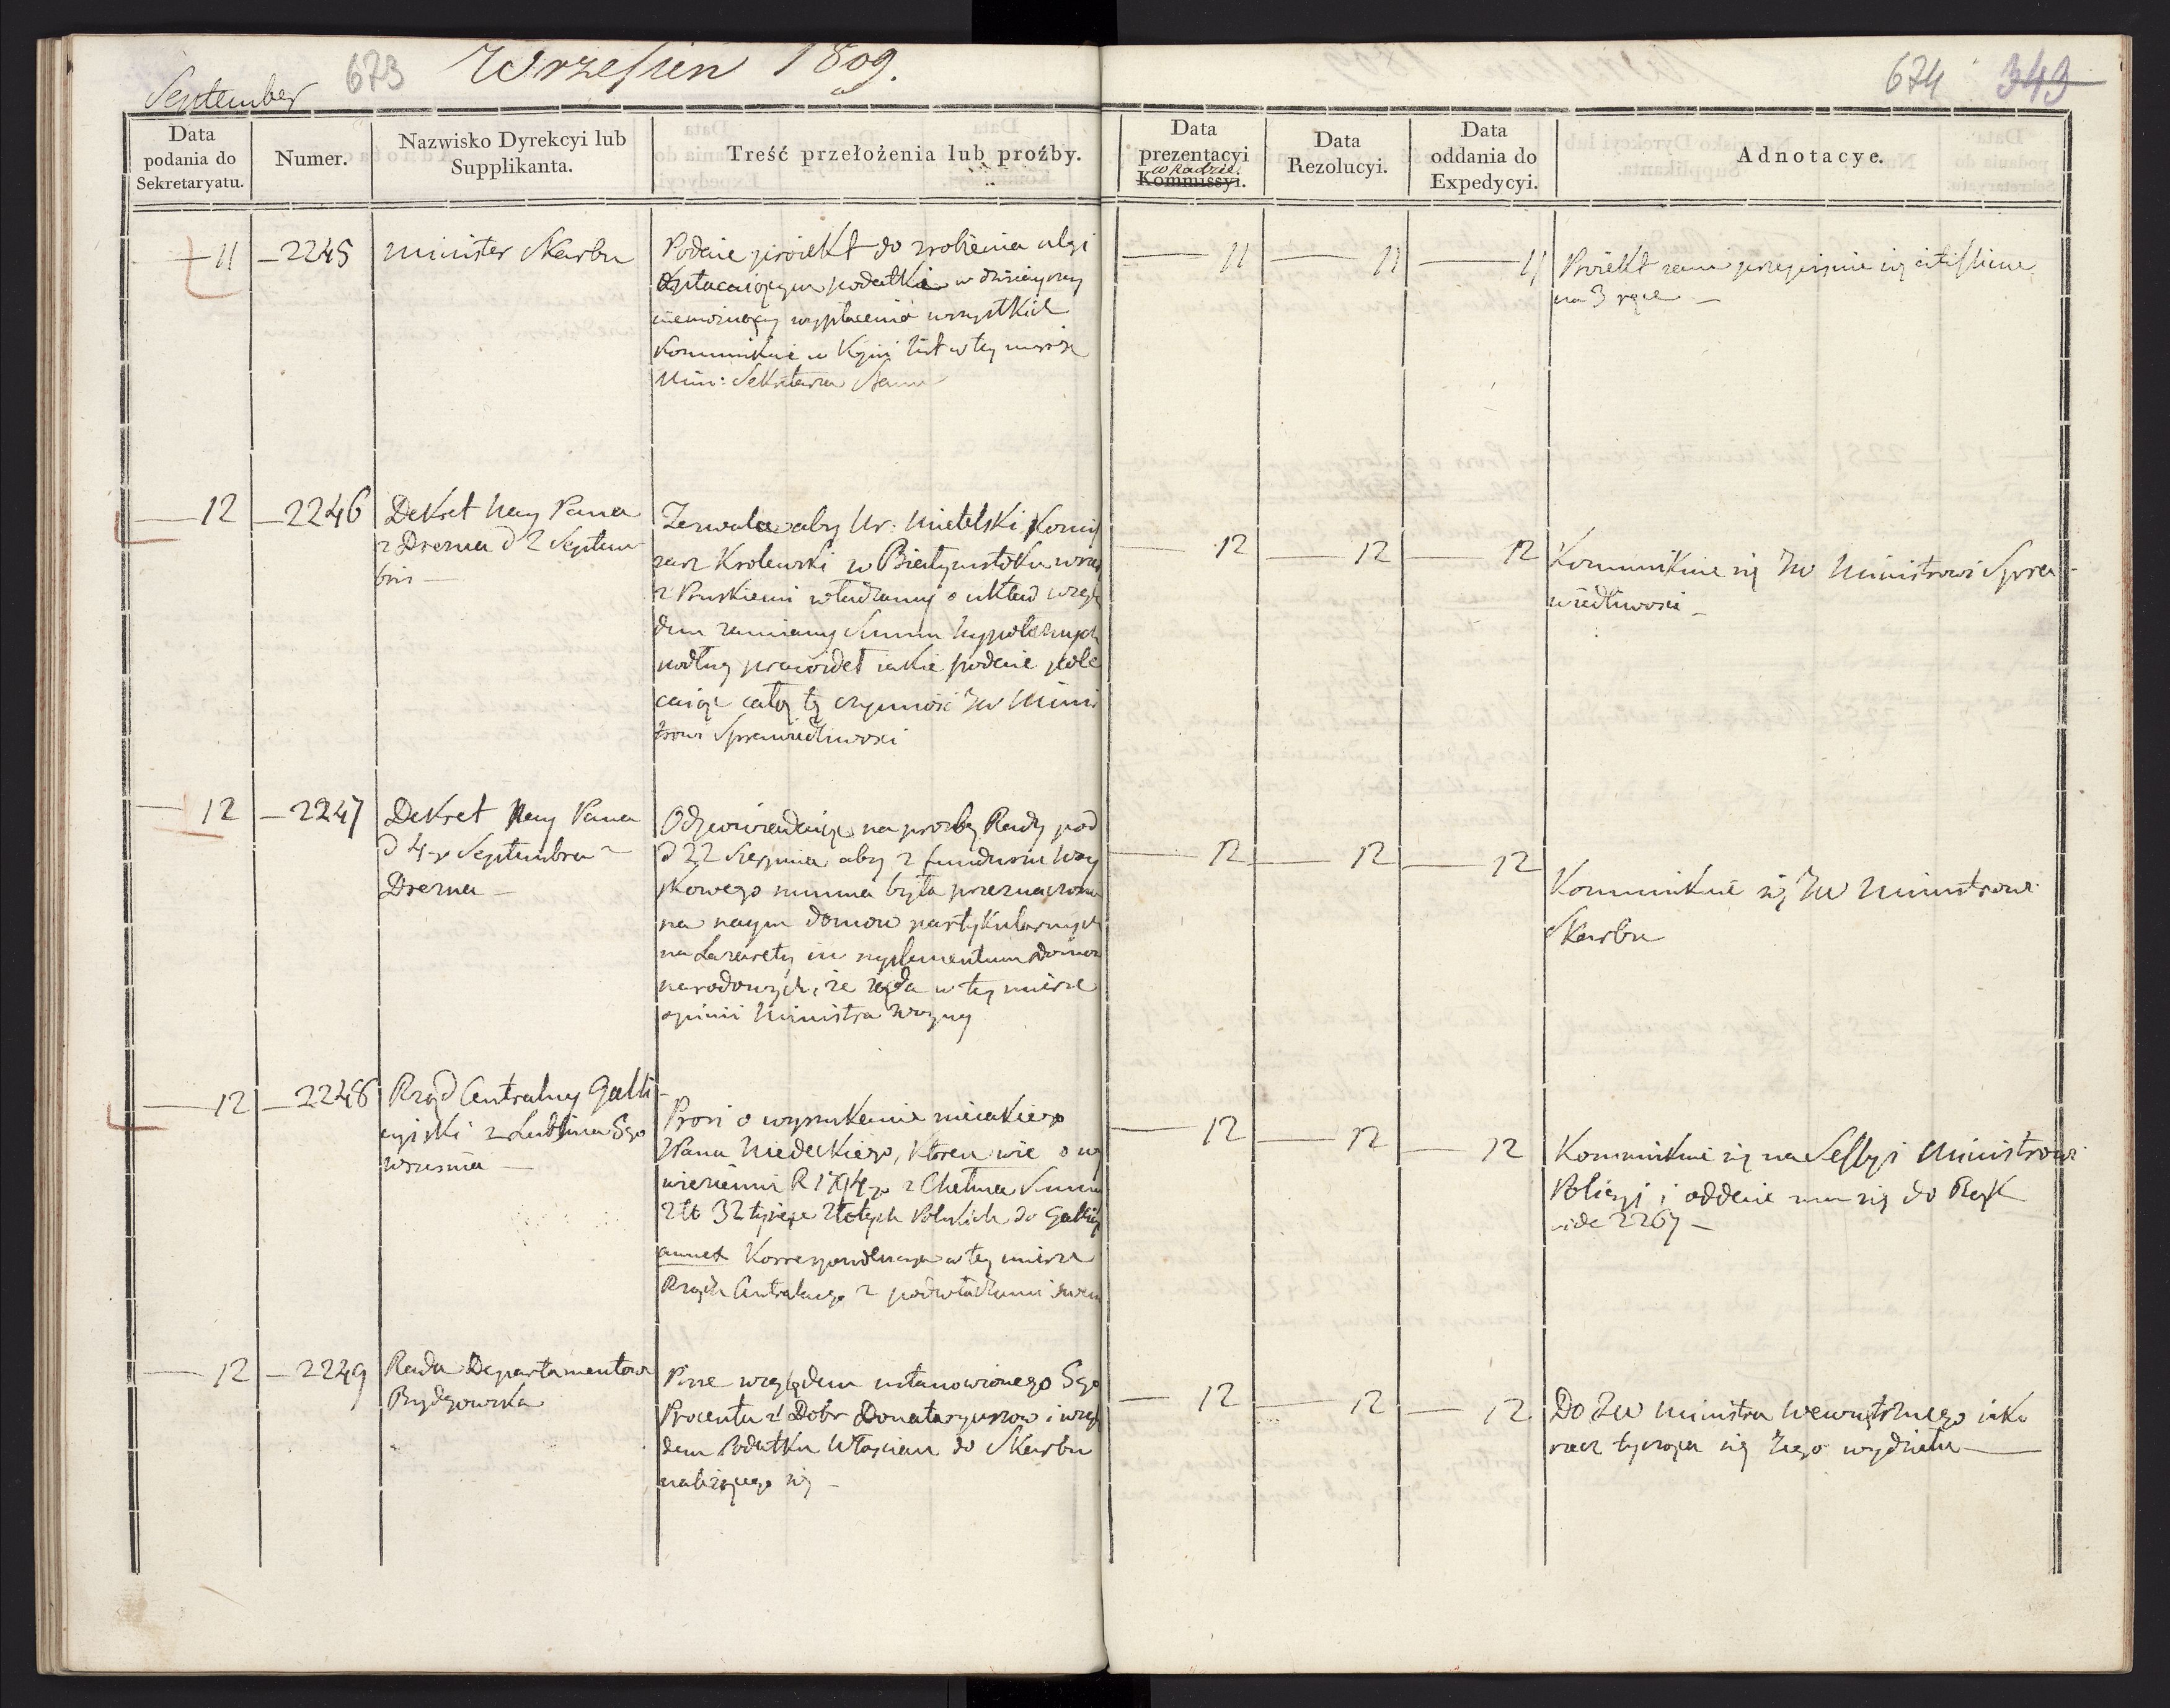 September
673
Wrzesien 1809.
674 349
Data podania do Sekretaryatu.
Numer.
Nazwisko Dyrekcyi lub Supplikanta.
Treść przełożenia lub proźby.
Data prezentacyi Kommissyi.
w Radzie.
Data Rezolucyi.
Data oddania do Expedycyi.
Adnotacye.
— 11 — 2245
Minister Skarbu
Podaie proiekt do zrobienia ulgi
podatki
wypłacenia wszystkich
Kommunikuie w Kopii list w tey mierze
Min: Sekretarza Stanu
— 11 — 11 — 11
Proiekt
na 3 ręce —
— 12 — 2246
Dekret Nay Pana
z Drezna d 2 Septem
bris —
Zezwala aby Ur. Mielelski Komis
sarz Krolewski w Białymstoku wszed
z Pruskiemi władzami o układ wzglę
dem zamiany Summ hyppotecznych
podług prawideł iakie podaie pole
caiąc całą tę czynność JW Mini
strowi Sprawiedliwosci
— 12 — 12 — 12
Kommunikuie się JW Ministrowi Spra
wiedliwosci —
— 12 — 2247
Dekret Nay Pana
d 4go Septembra z
Drezna —
Odpowiadaiąc na prozbę Rady pod
d 22 Sierpnia aby z funduszu Woy
skowego summa była przeznaczona
na naym domow partykularnych
na Lazarety in supplementum domow
narodowych, że żąda w tey mierze
opinii Ministra Woyny
— 12 — 12 — 12
Kommunikuie się JW Ministrowi
Skarbu
— 12 — 2248
Rząd Centralny Galli
cyiski z Lublina 5go
Wrzesnia —
Prosi o wyszukanie nieiakiego
Pana Niedeckiego, ktoren wie o wy
wiezieniu R 1794go z Chełma Summ
Złł 32 tysięcy Złotych Polskich do Gallicyi
annex Korrespondencya w tey mierze
Rządu Centralnego z podwładzami swem
— 12 — 12 — 12
Kommunikuie się na Sessyi Ministrowi
Policyi i oddaie mu się do Rąk
vide 2267 —
— 12 — 2249
Rada Departamentowa
Bydgowska
Pisze względem ustanowionego 5go
Procentu z Dobr Donataryuszow i wzglę
dem Podatku Włoscian do Skarbu
należącego się —
— 12 — 12 — 12
Do JW Ministra Wewnętrznego iako
rzecz tycząca się Jego wydziału —